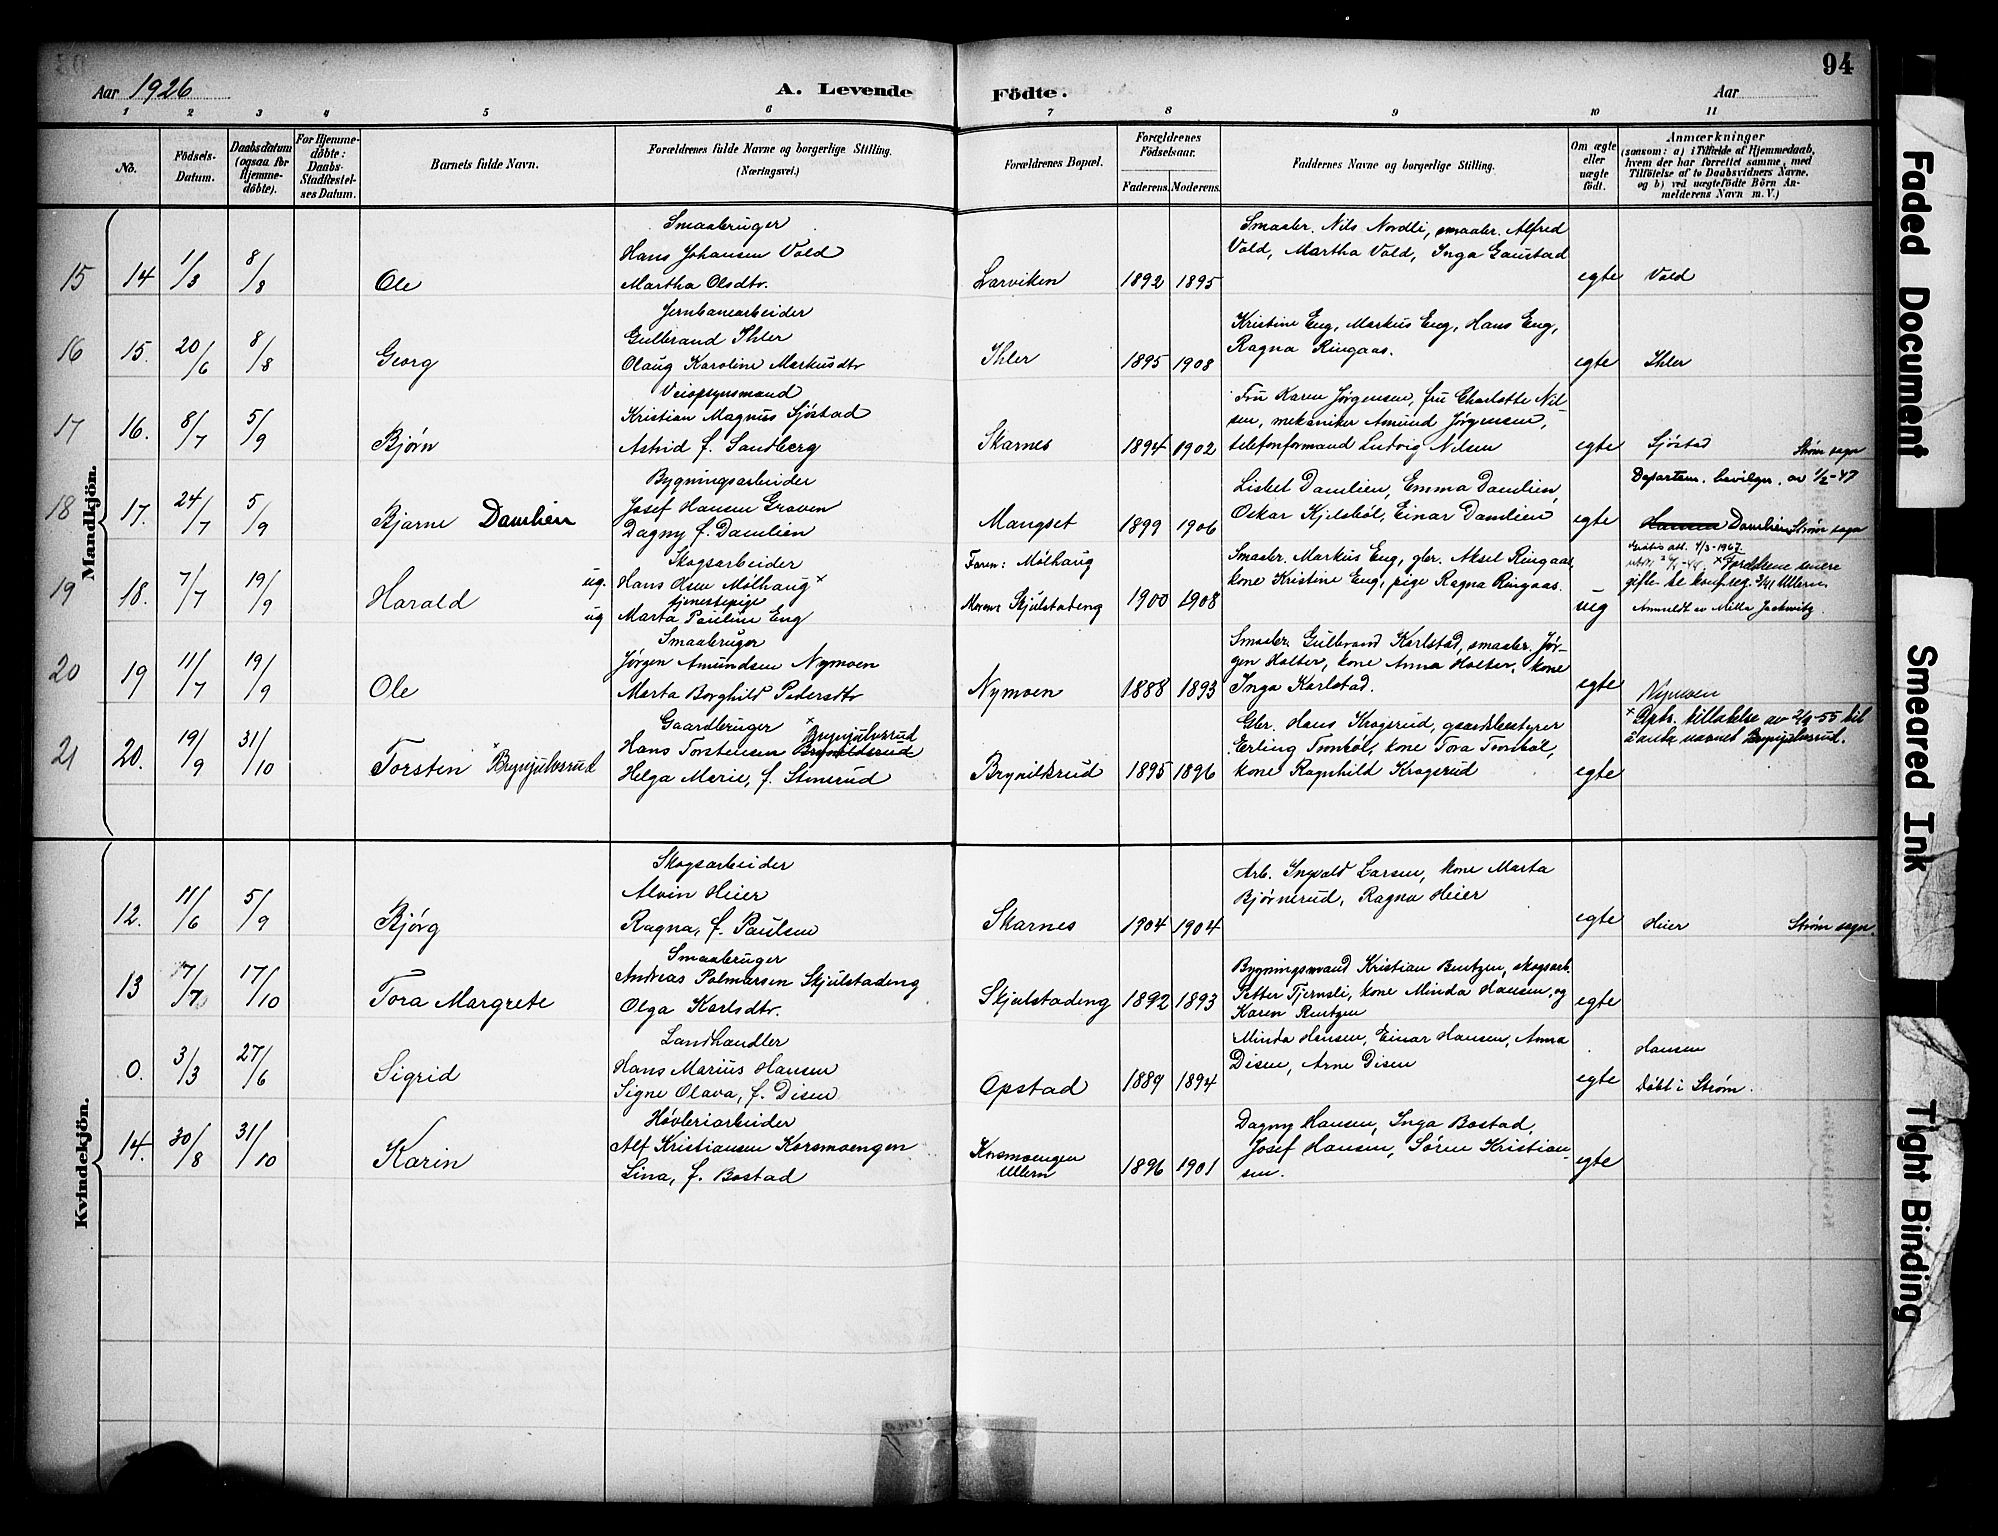 94
Aar 1926
A. Levende
Födte.
Aar
1 2 3 4 5 6 7 8 9 10 11
No.
Födsels-
Datum.
Daabsdatum
(ogsaa for
Hjemme-
døbte).
For Hjemme-
døbte:
Daabs-
Stadfæstel-
ses Datum.
Barnets fulde Navn.
Forældrenes fulde Navne og borgerlige Stilling.
(Næringsvei.)
Forældrenes Bopæl.
Forældrenes
Födselsaar.
Faderens. Moderens.
Faddernes Navne og borgerlige Stilling.
Om ægte
eller
uægte
födt.
Anmærkninger
(saasom: a) i Tilfælde af Hjemmedaab,
hvem der har forrettet samme, med
Tilföielse af to Daabsvidners Navne,
og b) ved uægtefödte Börn An-
melderens Navn m. V.)
Mandkjön.
15 14 1/3 8/8 Ole
Smaabruger
Hans Johansen Vold
Martha Olsdtr.
Larviken 1892 1895
Smaabr. Nils Nordli, smaabr. Alfred
Vold, Martha Vold, Inga Gaustad
egte Vold
16 15. 20/6 8/8 Georg
Jernbanearbeider
Gulbrand Ihler
Olaug Karoline Markusdtr
Ihler 1895 1908
Kristine Eng, Markus Eng, Hans Eng,
Ragna Ringaas.
egte Ihler
17 16. 8/7 5/9 Bjørn
Veiopsynsmand
Kristian Magnus Sjöstad
Astrid f. Sandberg
Skarnes 1894 1902
Fru Karen Jørgensen, fru Charlotte Nil-
sen, mekaniker Amund Jørgensen,
telefonformand Ludvig Nilsen
egte Sjöstad Strøm sogn
18 17. 24/7 5/9 Bjarne Damlien
Bygningsarbeider
Josef Hansen Graven
Dagny f. Damlien
Mangset 1899 1906
Lisbet Damlien, Emma Damlien,
Oskar Kjelsböl, Einar Damlien
egte
Departem. bevilgn. av 1/2-47
Hansen Damlien Strøm sogn
19 18. 7/7 19/9 Harald
Skogsarbeider
ug. Hans Olsen Mölhaug x
tjenestepige
ug Marta Pauline Eng
Faren: Mölhaug
Moren: Skjulstadeng 1900 1908
Smaabr. Markus Eng, gbr. Aksel Ringaas,
kone Kristine Eng, pige Ragna Ringaas.
ug
4/3-1967
x Foreldrene senere
gifte. Ullern.
Anmeldt av Milla
20 19 11/7 19/9 Ole
Smaabruger
Jørgen Amundsen Nymoen
Marta Borghild Pedersdtr
Nymoen 1888 1893
Smaabr. Gulbrand Karlstad, smaabr. Jør-
gen Holter, kone Anna Holter, kone
Inga Karlstad.
egte Nymoen
21 20. 19/9 31/10 Torsten x Brynjulvsrud
Gaardbruger x Brynjulvsrud
Hans Torstensen Brynildsrud
Helga Marie, f. Stenerud
Brynilksrud 1895 1896
Gbr. Hans Krogsrud, gaardsbestyrer
Erling Tronböl, kone Tora Tronböl,
kone Ragnhild Krogsrud
egte
x tillatelse av 2/9-55 til
å anta navnet Brynjulvsrud.
Kvindekjön.
12. 11/6 5/9 Bjórg
Skogsarbeider
Alvin Heier
Ragna, f. Paulsen
Skarnes 1904 1904
Arb. Ingvald Larsen, kone Marta
Bjørnerud, Ragna Heier
egte Heier Strøm sogn.
13 17/7 17/10 Tora Margrete
Smaabruger
Andreas Palmarsen Skjulstadeng
Olga Karlsdtr.
Skjulstadeng 1892 1893
Bygningsmand Kristian Bentzen, skogsarb.
Petter Tjernsli, kone Minda Hansen, og
Karen Bentzen
egte
0. 3/3 27/6 Sigrid
Landhandler
Hans Marius Hansen
Signe Olava, f. Disen
Opstad 1889 1894
Minda Hansen, Einar Hansen, Anna
Disen, Arne Disen
egte
Hansen
Döbt i Strøm.
14. 30/8 31/10 Karin
Høvleriarbeider
Alf Kristiansen Korsmoengen
Lina, f. Bostad
Korsmoengen
Ullern
1896 1901
Dagny Hansen, Inga Bostad,
Josef Hansen, Sören Kristian-
sen.
egte
Faded Document
Smeared Ink
Tight Binding